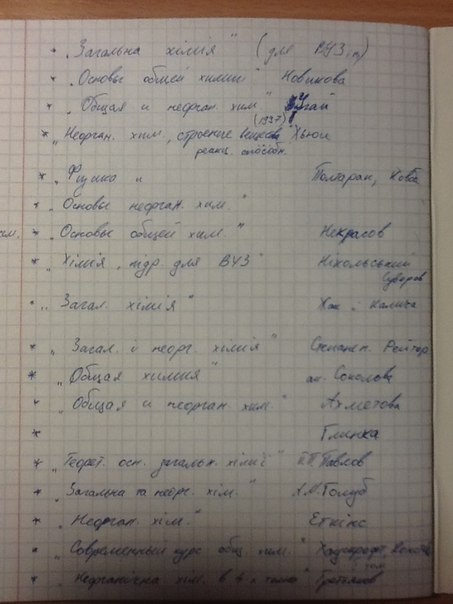 * „Загальна хімія" (для ВУЗ-ів)
* „Основы общей химии" Новикова
* „Общая и неорган. хим" Угай
(1937)
* „Неорган. хим, строение вещества Хьюи
реакц. способн.
* „Физика и Полторак, Ковба
* „Основы неорган. хим."
* „Основы общей хим." Некрасов
* „Хімія, підр. для ВУЗ" Нікольський
Суворов
* „Загал. хімія" и
* „Загал. і неорг. хімія" Степанен. Рейтер
* „Общая химия" Соколова
* „Общая и неорган. хим." Ахметова
* Глинка
* „Теорет. осн. загальн. хімії" Павлов
* „Загальна та неорг. хім." Голуб
* „Неорган. хім." Еткінс
* „Современный курс общ. хим."
* „Неорганична хим. в 4-х томах" Третьяков